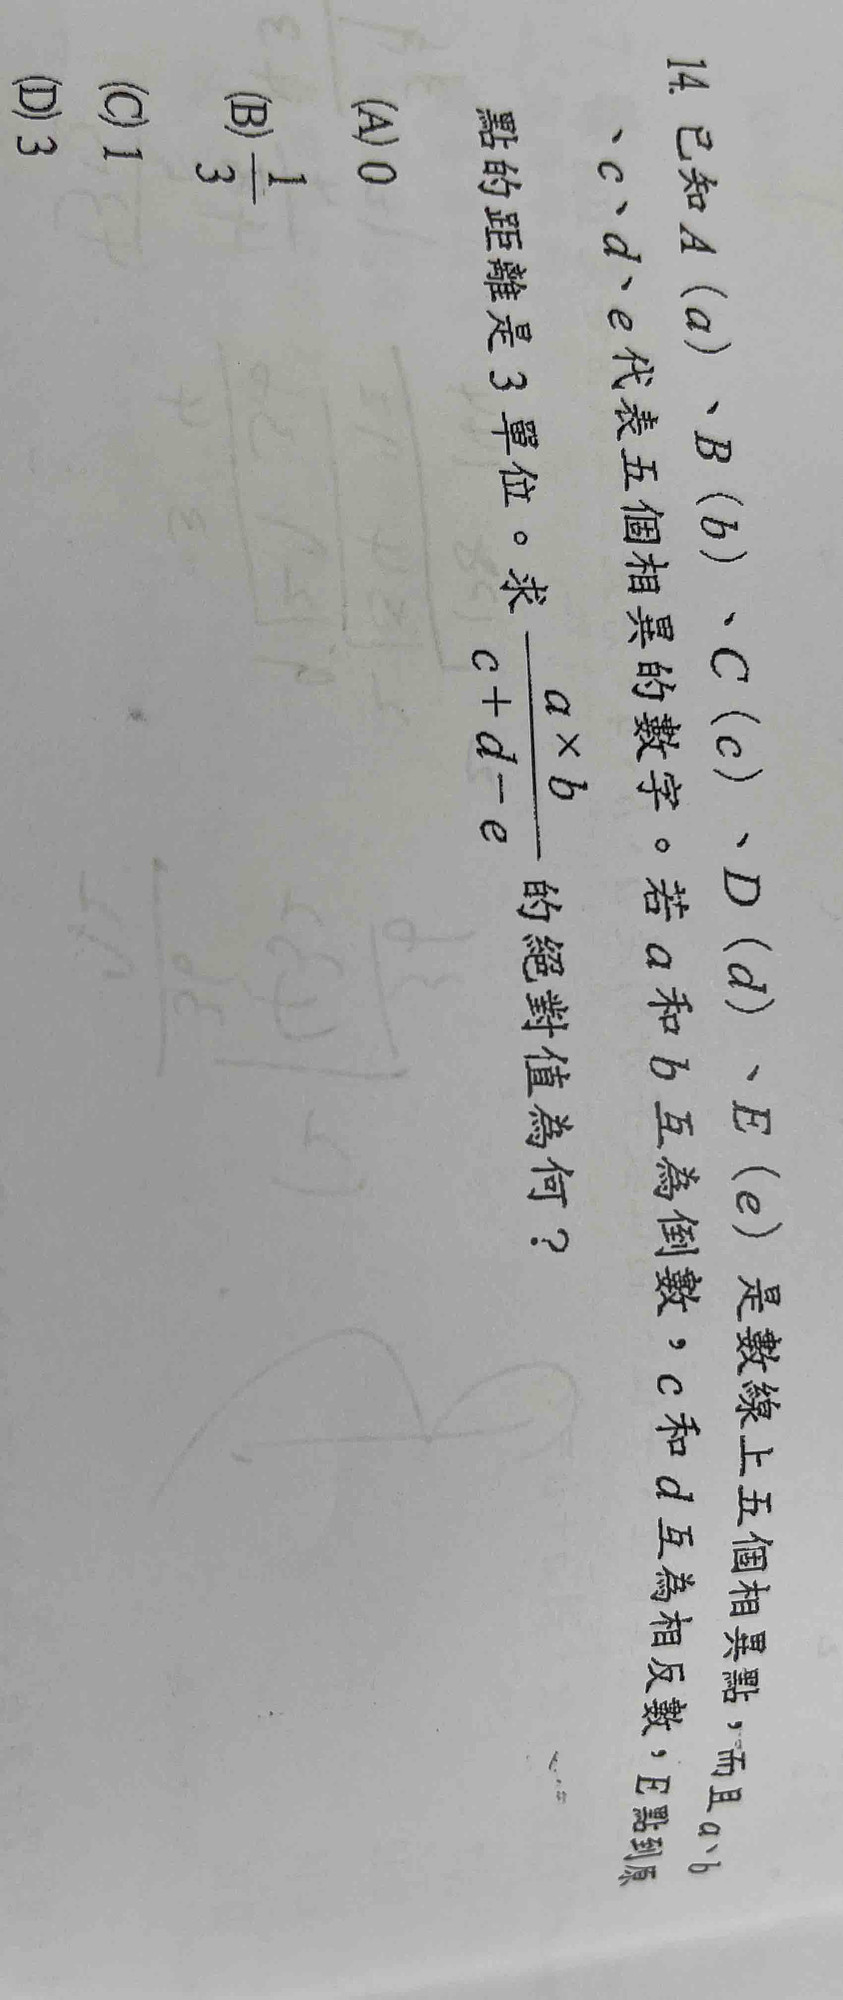 14. 已知 A(a)、B(b)、C(c)、D(d)、E(e) 是數線上五個相異點，而且a、b
、c、d、e 代表五個相異的數字。若 a 和 b 互為倒數，c 和 d 互為相反數，E點到原
點的距離是 3 單位。求 \frac{a×b}{c+d-e} 的絕對值為何？
(A) 0
(B) \frac{1}{3}
(C) 1
(D) 3